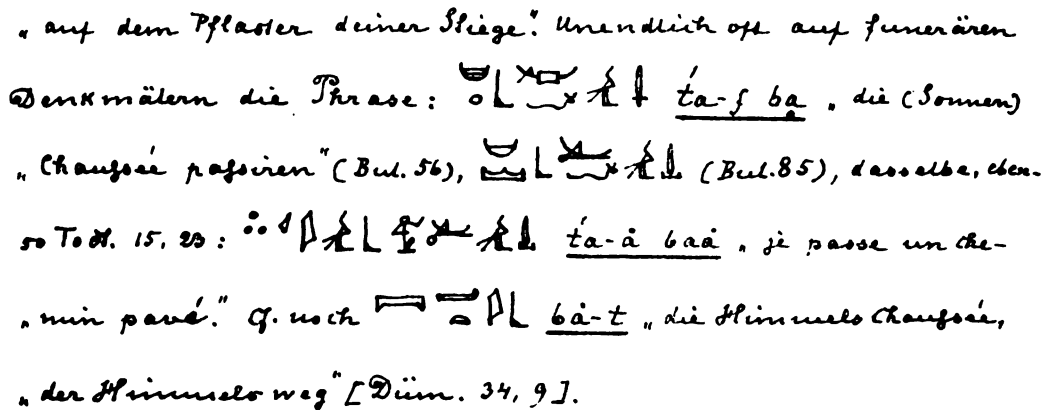 „ auf dem Pflaster deiner Stiege". Unendlich oft auf funerären
Denkmälern die Phrase: t́a-f ba „ die (Sonnen)
„ Chaussée passiren" (Bul. 56), (Bul. 85), dasselbe, eben-
so Todt. 15, 23: t́a-å baå „ je passe un che-
„ min pavé." Cf. noch bå-t „ die Himmels Chaussée,
„ der Himmelsweg" [Düm. 34, 9].